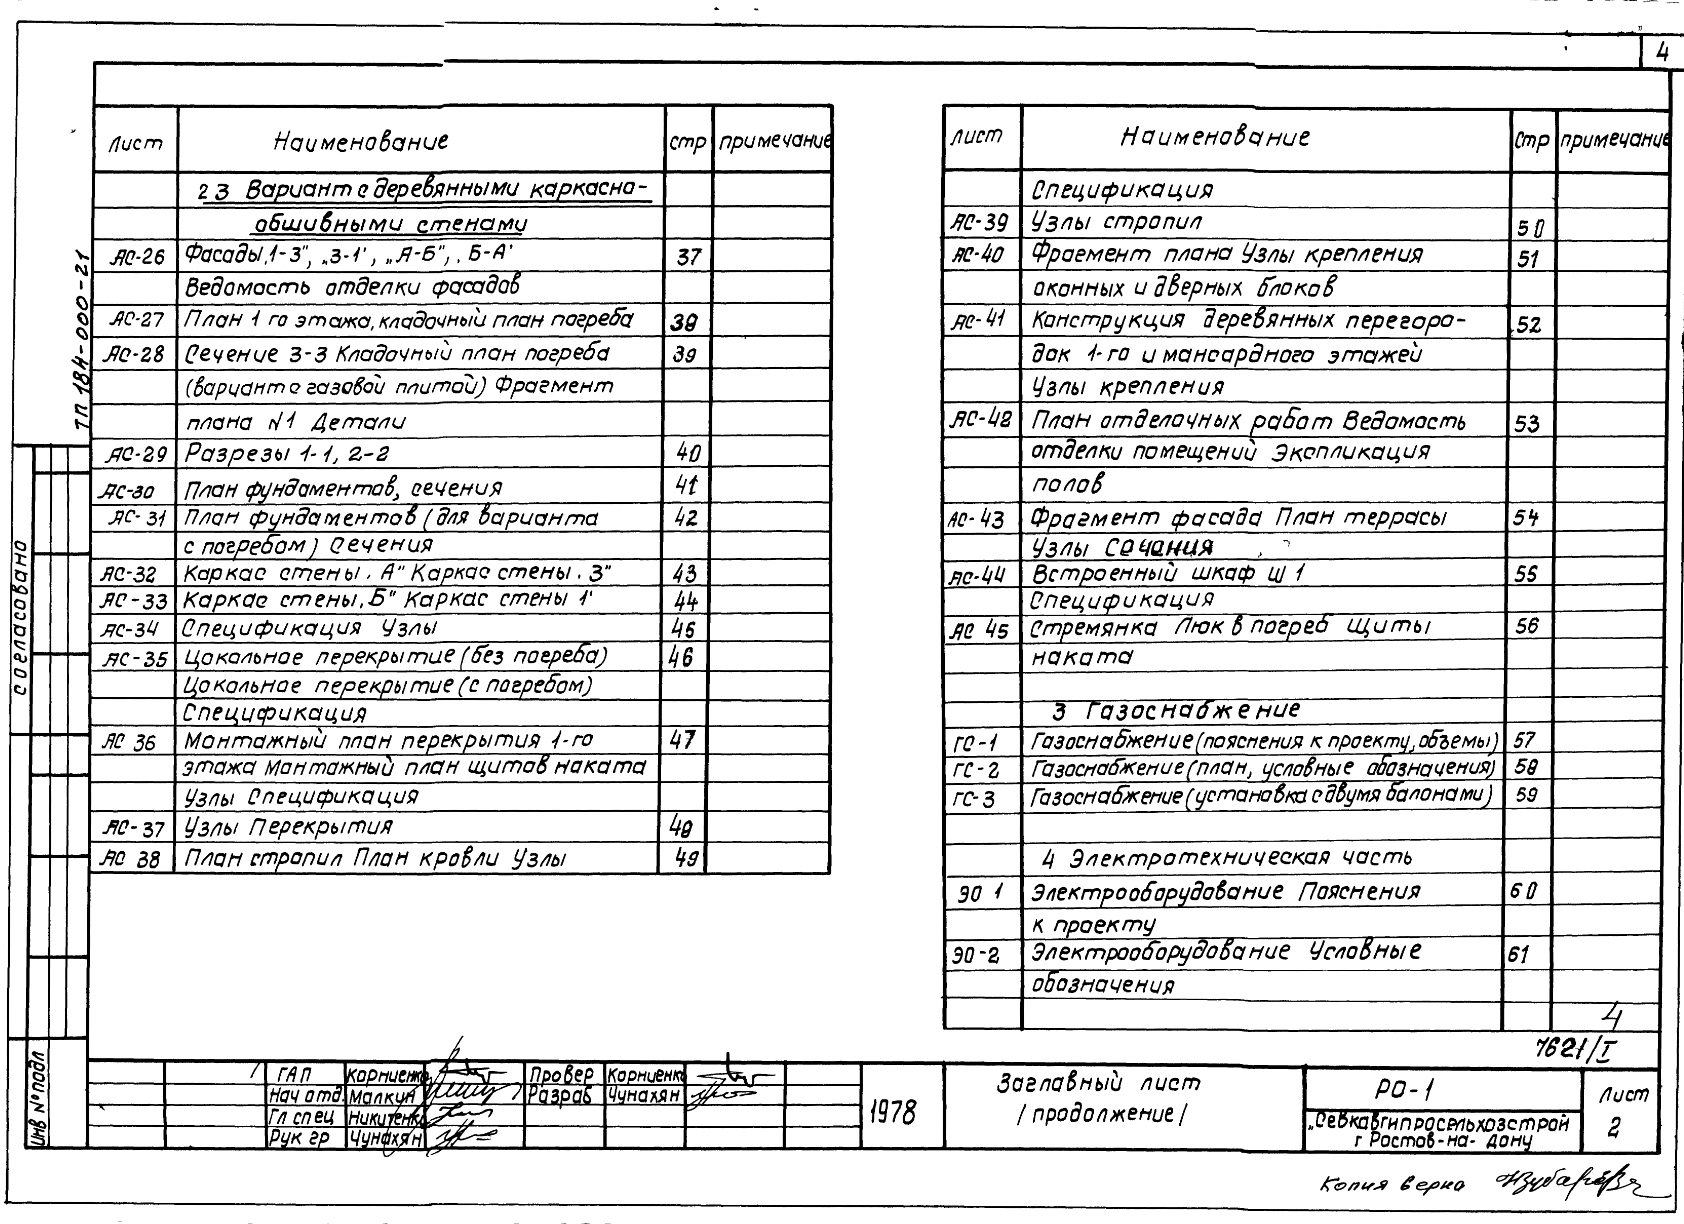 4
ТП 184-000-21
согласовано
Инв № подл
Лист Наименование стр примечание
2 3 Вариант с деревянными каркасно-
обшивными стенами
АС-26 Фасады „1-3", „3-1", „А-Б", „Б-А" 37
Ведомость отделки фасадов
АС-27 План 1 го этажа, кладочный план погреба 38
АС-28 Сечение 3-3 Кладочный план погреба 39
(вариант с газовой плитой) Фрагмент
плана №1 Детали
АС-29 Разрезы 1-1, 2-2 40
АС-30 План фундаментов, сечения 41
АС-31 План фундаментов (для варианта 42
с погребом) Сечения
АС-32 Каркас стены „А" Каркас стены „3" 43
АС-33 Каркас стены „Б" Каркас стены 1" 44
АС-34 Спецификация Узлы 45
АС-35 Цокольное перекрытие (без погреба) 46
Цокольное перекрытие (с погребом)
Спецификация
АС 36 Монтажный план перекрытия 1-го 47
этажа Монтажный план щитов наката
Узлы Спецификация
АС-37 Узлы Перекрытия 48
АС 38 План стропил План кровли Узлы 49
Лист Наименование Стр примечание
Спецификация
АС-39 Узлы стропил 50
АС-40 Фрагмент плана Узлы крепления 51
оконных и дверных блоков
АС-41 Конструкция деревянных перегоро- 52
док 1-го и мансардного этажей
Узлы крепления
АС-42 План отделочных работ Ведомость 53
отделки помещений Экспликация
полов
АС-43 Фрагмент фасада План террасы 54
Узлы Сечения
АС-44 Встроенный шкаф Ш 1 55
Спецификация
АС 45 Стремянка Люк в погреб Щиты 56
наката
3 Газоснабжение
ГС-1 Газоснабжение (пояснения к проекту, объемы) 57
ГС-2 Газоснабжение (план, условные обозначения) 58
ГС-3 Газоснабжение (установка с двумя балонами) 59
4 Электротехническая часть
ЭО 1 Электрооборудование Пояснения 60
к проекту
ЭО-2 Электрооборудование Условные 61
обозначения
4
7621/I
ГАП Корниенко Провер Корниенко
Нач отд. Малкин Разраб Чунахян
Гл спец Никитенко
Рук гр Чунахян
1978
Заглавный лист
/продолжение/
РО-1
„Севкавгипросельхозстрой
г Ростов-на-Дону
Лист
2
Копия верна